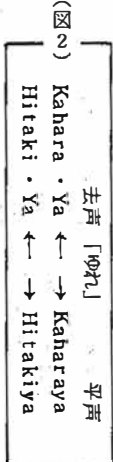 (図2)
去声「ゆれ」 平声
Kahara・Ya ← → Kaharaya
Hitaki・Ya ← → Hitakiya